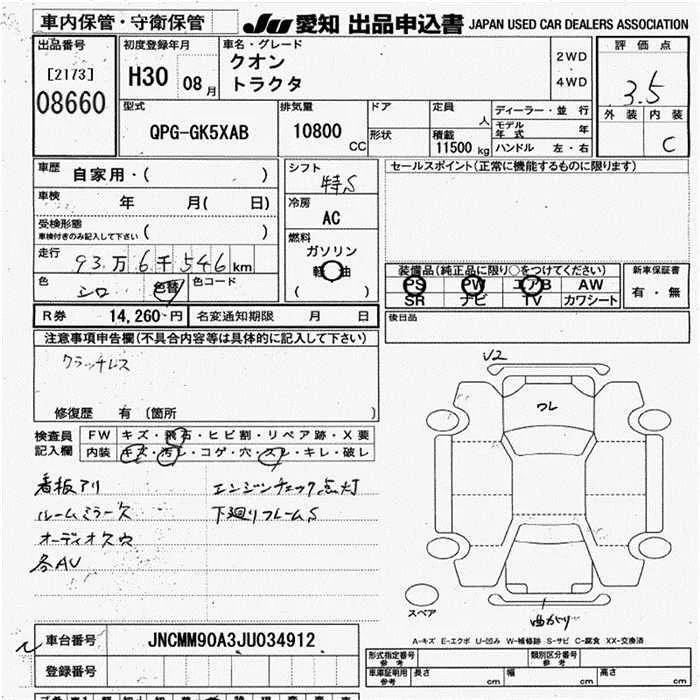 車内保管・守衛保管 JU 愛知 出品申込書 JAPAN USED CAR DEALERS ASSOCIATION
出品番号 [2173] 08660
初度登録年月 H30 08月
車名・グレード クオン トラクタ 2WD 4WD
評価点 3.5
外装 内装 C
型式 QPG-GK5XAB
排気量 10800 CC
ドア 形状
定員 人
積載 11500 kg
ディーラー・並行
モデル年式 年
ハンドル 左・右
車歴 自家用・( )
車検 年 月( 日)
受検形態 ( )
車検付きのみ記入して下さい
走行 93万6千546km
色 シロ 色替 色コード
シフト 特S
冷房 AC
燃料 ガソリン 軽油 ( )
R券 14,260-円 名変通知期限 月 日
セールスポイント(正常に機能するものに限ります)
装備品(純正品に限り○をつけてください)
PS PW エアB AW
SR ナビ TV カワシート
新車保証書 有・無
後日品
注意事項申告欄(不具合内容等は具体的に記入して下さい)
クラッチレス
修復歴 有 〔箇所 〕
検査員記入欄
FW キズ・飛石・ヒビ割・リペア跡・X要
内装 キズ・汚レ・コゲ・穴・スレ・キレ・破レ
看板アリ エンジンチェック点灯
ルームミラー欠 下廻りフレームS
オーディオ欠
各AU
U2
ワレ
スペア
曲がり
A-キズ E-エクボ U-凹み W-補修跡 S-サビ C-腐食 XX-交換済
車台番号 JNCMM90A3JU034912
登録番号
形式指定番号 参考 類別区分番号 参考
車庫証明用 参考 長さ cm 幅 cm 高さ cm